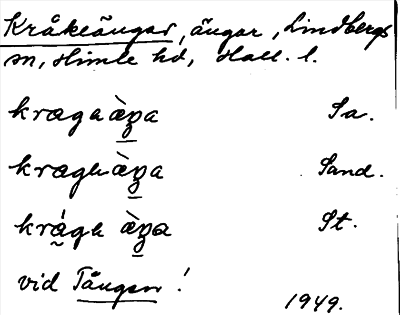 Kråkeängar, ängar, Lindbergs
sn, Himle hd, Hall. l.
kragaæ̀ŋa Sa.
kraghæ̀ŋa Sand.
krágh æ̀ŋa St.
vid Tången!
1949.